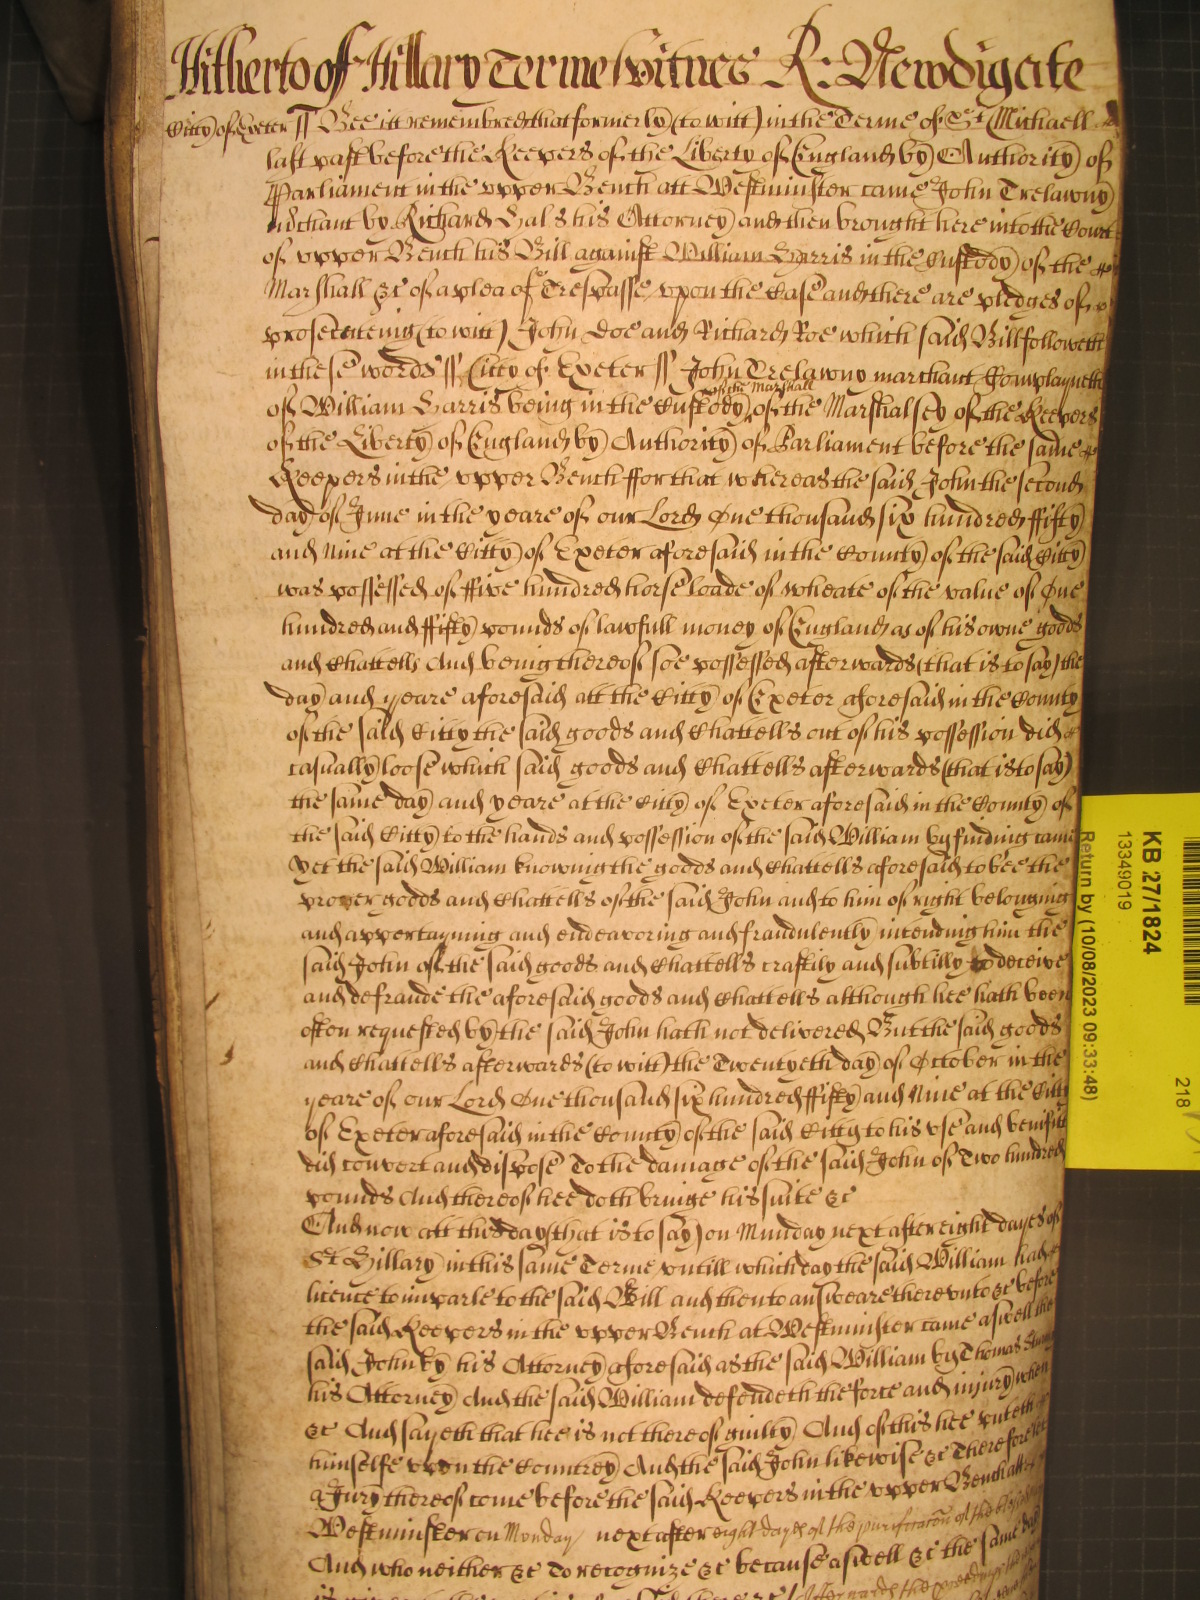 Hitherto of Hillary Terme Witnes R: Newdigate
Citty of Exeter ss Bee itt remembred that formerly (to witt) in the Terme of St Michaell
last past before the Keepers of the Liberty of England by Authority of
Parliament in the upper Bench att Westminster came John Trelawny
mchant by Richard Hals his Attorney and then brought here into the Court
of upper Bench his Bill against William Harris in the Custody of the
Marshall &c of a plea of Trespasse upon the Case and there are pledges of
prosecuteing (to witt) John Doe and Richard Roe which said Bill followeth
in these words ss Citty of Exeter ss John Trelawny marchant Complayneth
of William Harris being in the Custody of the Marshall of the Marshalsey of the Keepers
of the Liberty of England by Authority of Parliament before the same
Keepers in the upper Bench ffor that whereas the said John the second
day of June in the yeare of our Lord One thousand six hundred ffifty
and Nine at the Citty of Exeter aforesaid in the County of the said Citty
was possessed of ffive hundred horse loade of wheate of the value of One
hundred and ffifty pounds of lawfull money of England as of his owne goods
and Chattells And being thereof soe possessed afterwards (that is to say) the
day and yeare aforesaid att the Citty of Exeter aforesaid in the County
of the said Citty the said goods and Chattells out of his possession did
casually loose which said goods and Chattells afterwards (that is to say)
the same day and yeare at the Citty of Exeter aforesaid in the County of
the said Citty to the hands and possession of the said William by finding came
Yet the said William knowing the goods and Chattells aforesaid to bee the
proper goods and Chattells of the said John and to him of right belonging
and appertayning and endeavoring and fraudulently intending him the
said John of the said goods and Chattells craftily and subtilly to deceive
and defraude the aforesaid goods and Chattells although hee hath been
often requested by the said John hath not delivered But the said goods
and Chattells afterwards (to witt) the Twentyeth day of October in the
yeare of our Lord One thousand six hundred ffifty and Nine at the Citty
of Exeter aforesaid in the County of the said Citty to his use and benifitt
did convert and dispose To the damage of the said John of Two hundred
pounds And thereof hee doth bringe his suite &c
And now att this day (that is to say) on Munday next after eight dayes of
St Hillary in this same Terme untill which day the said William had
licence to imparle to the said Bill and then to answeare thereunto &c before
the said Keepers in the upper Bench at Westminster came aswell the
said John by his Attorney aforesaid as the said William by Thomas
his Attorney And the said William defendeth the force and injury when
&c And sayeth that hee is not thereof guilty And of this hee putteth
himselfe upon the Countrey And the said John likewise &c Therefore let
a Jury thereof come before the said Keepers in the upper Bench att
Westminster on Monday next after eight dayes of the purificacon of the blessed
And who neither &c to recognize &c because aswell &c the same day
Afterwards the
KB 27/1824
13349019
Return by (10/08/2023 09:33:48)
218